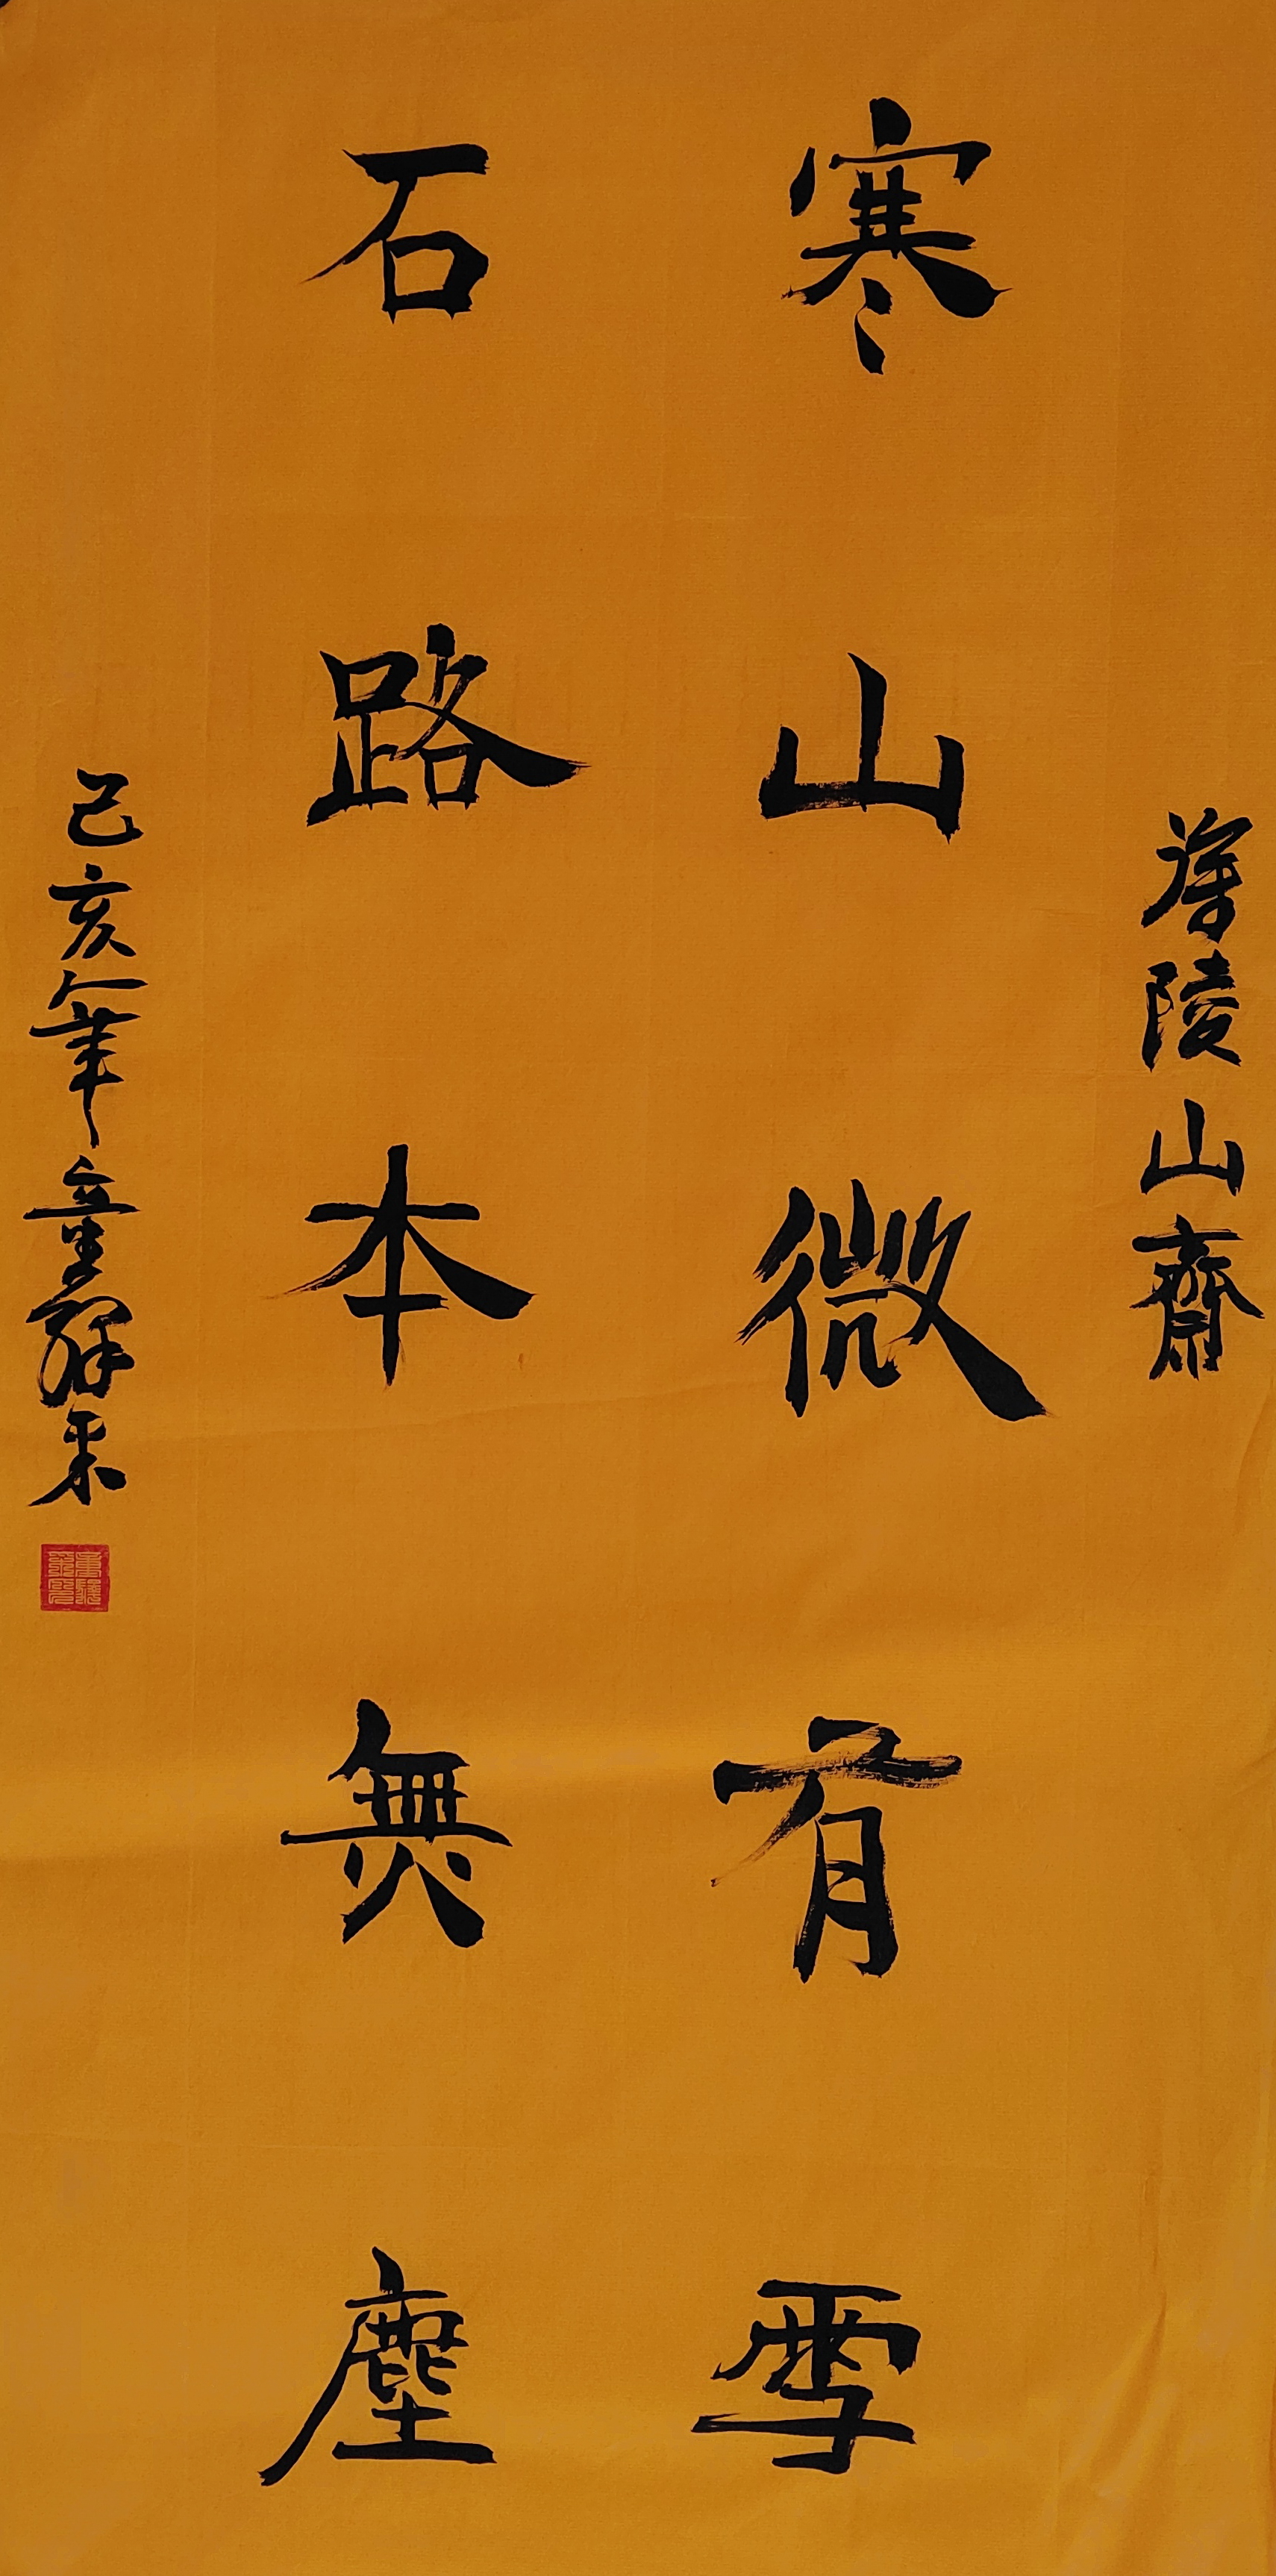 陵山齋
寒山微有雪
石路本無塵
己亥年童